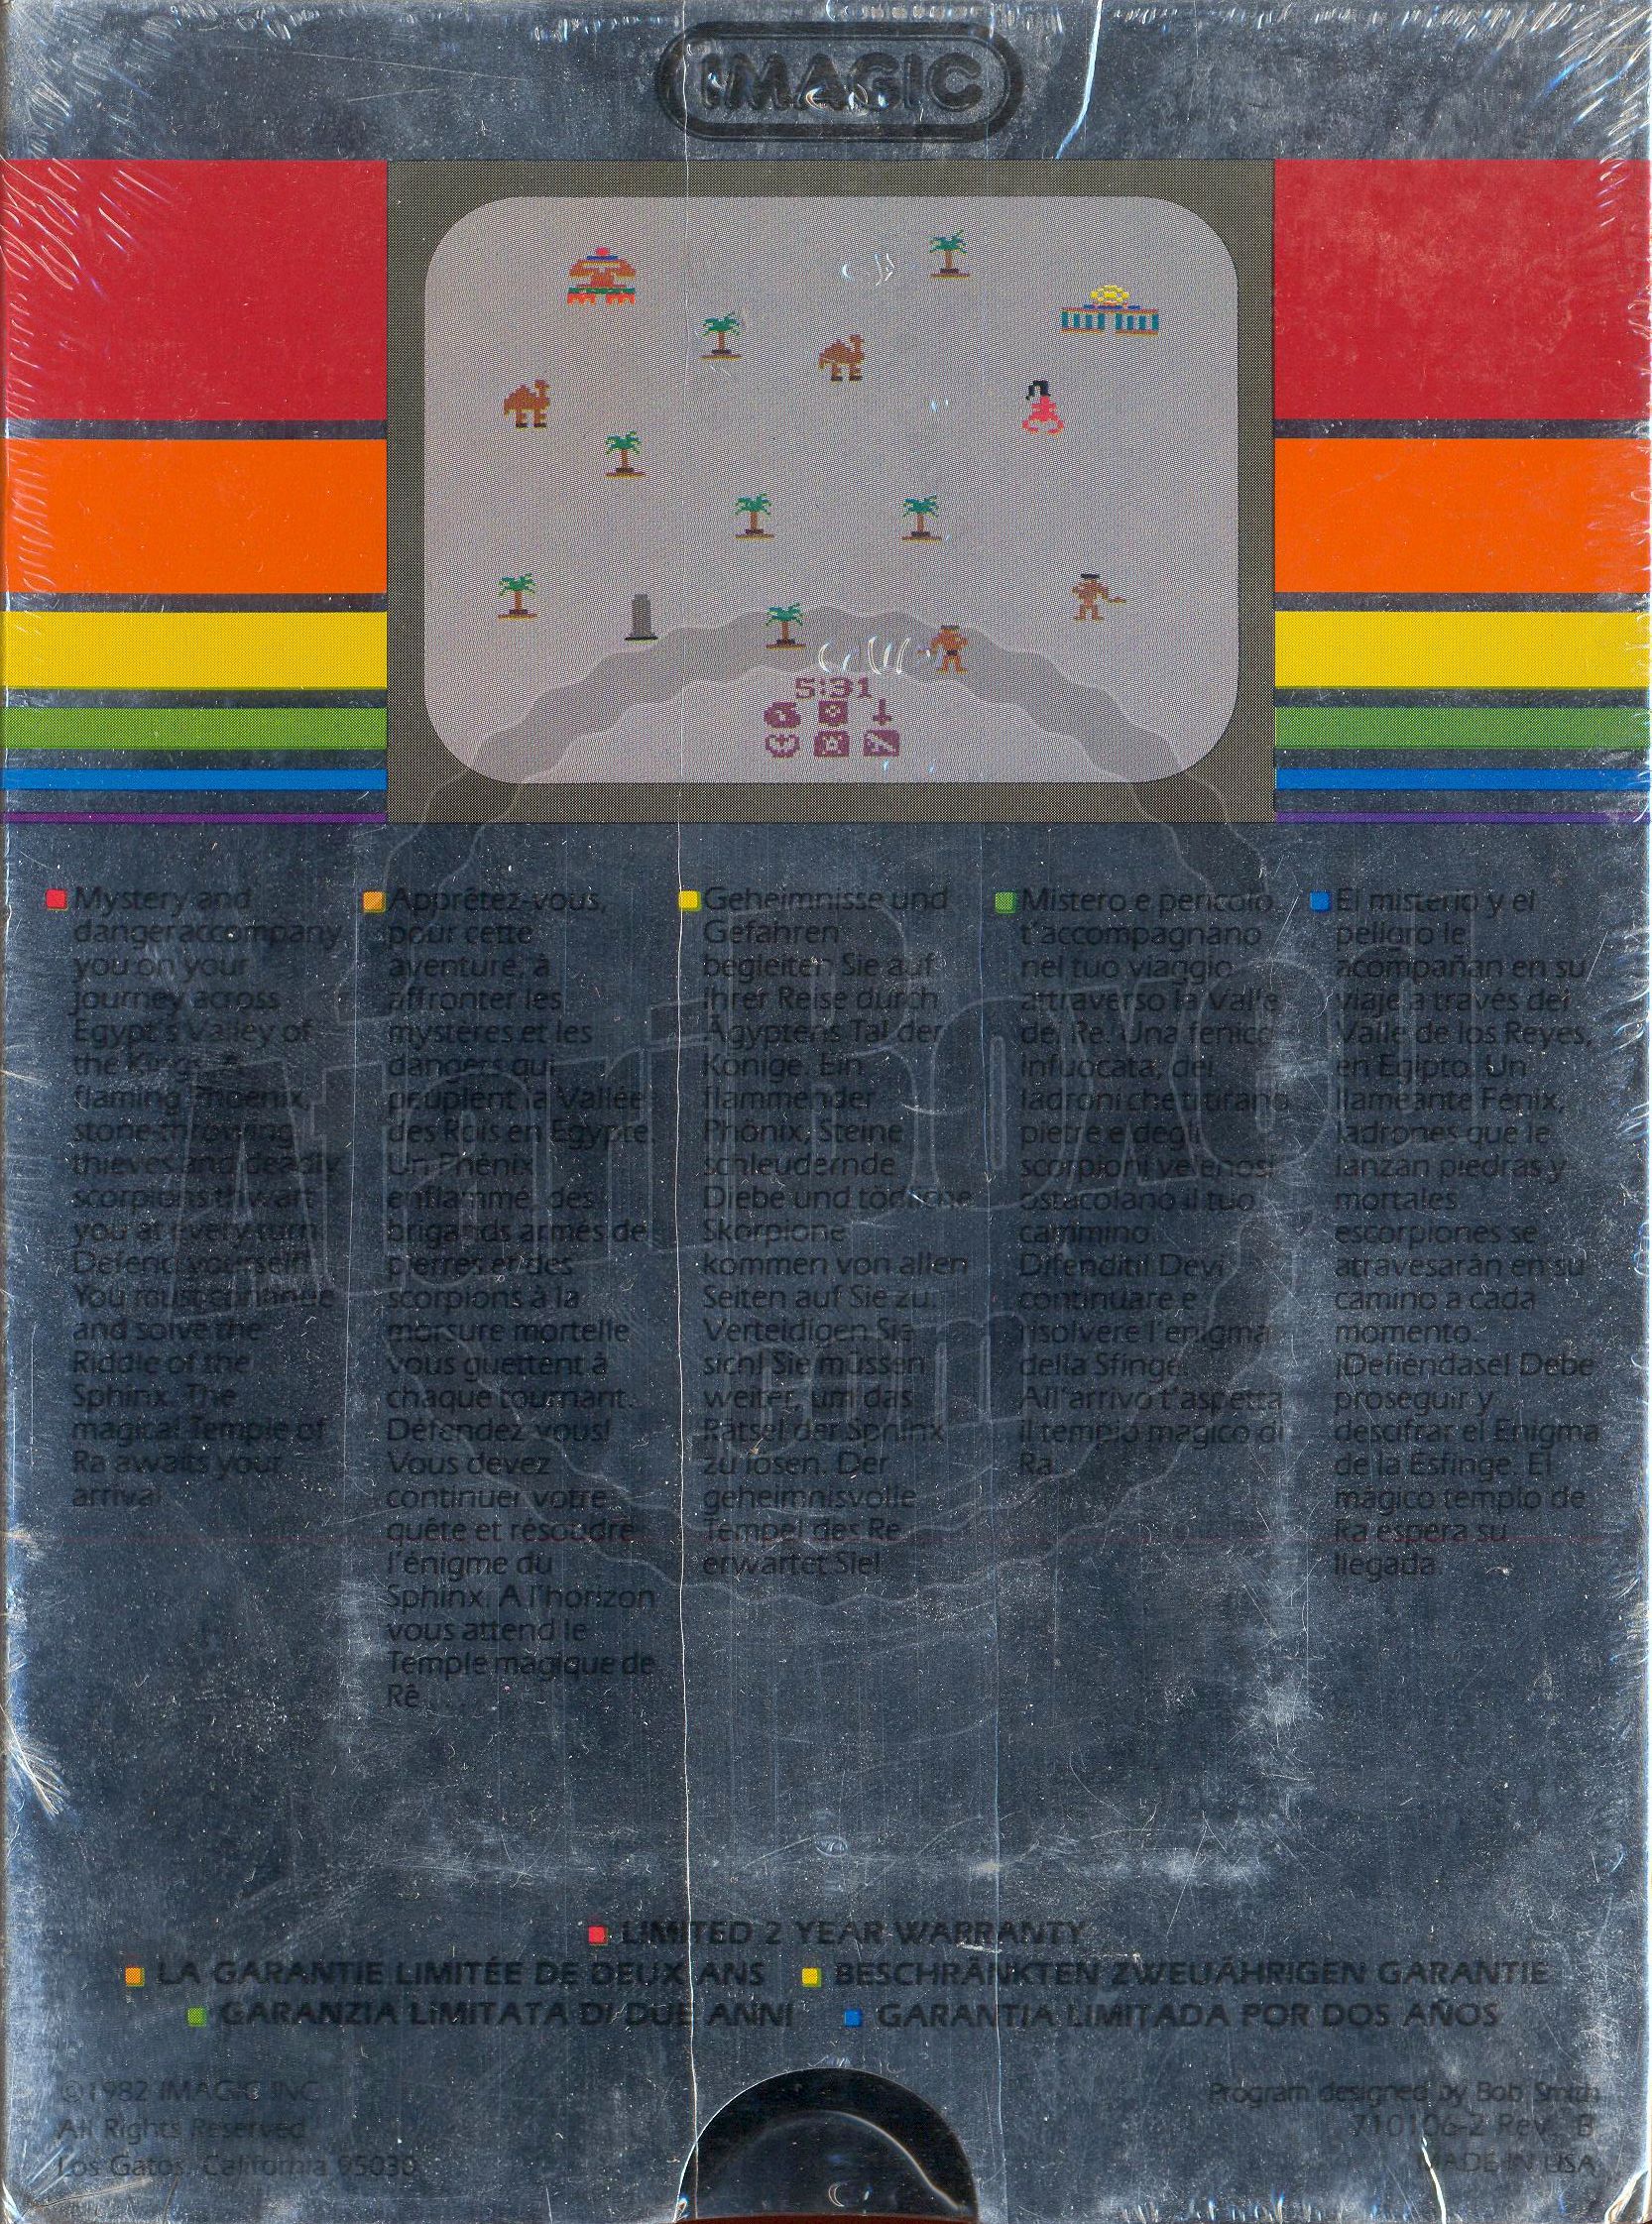 IMAGIC
5:31
Mystery and
danger accompany
you on your
journey across
Egypt's Valley of
the Kings. A
flaming Phoenix,
stone-throwing
thieves and deadly
scorpions thwart
you at every turn.
Defend yourself!
You must continue
and solve the
Riddle of the
Sphinx. The
magical Temple of
Ra awaits your
arrival.
Apprêtez-vous,
pour cette
aventure, à
affronter les
mystères et les
dangers qui
peuplent la Vallée
des Rois en Egypte.
Un Phénix
enflammé, des
brigands armés de
pierres et des
scorpions à la
morsure mortelle
vous guettent à
chaque tournant.
Défendez vous!
Vous devez
continuer votre
quête et résoudre
l'énigme du
Sphinx. A l'horizon
vous attend le
Temple magique de
Rê . . .
Geheimnisse und
Gefahren
begleiten Sie auf
Ihrer Reise durch
Ägyptens Tal der
Könige. Ein
flammender
Phönix, Steine
schleudernde
Diebe und tödliche
Skorpione
kommen von allen
Seiten auf Sie zu.
Verteidigen Sie
sich! Sie müssen
weiter, um das
Rätsel der Sphinx
zu lösen. Der
geheimnisvolle
Tempel des Re
erwartet Sie!
Mistero e pericolo
t'accompagnano
nel tuo viaggio
attraverso la Valle
dei Re. Una fenice
infuocata, dei
ladroni che ti tirano
pietre e degli
scorpioni velenosi
ostacolano il tuo
cammino.
Difenditi! Devi
continuare e
risolvere l'enigma
della Sfinge.
All'arrivo t'aspetta
il tempio magico di
Ra.
El misterio y el
peligro le
acompañan en su
viaje a través del
Valle de los Reyes,
en Egipto. Un
llameante Fénix,
ladrones que le
lanzan piedras y
mortales
escorpiones se
atravesarán en su
camino a cada
momento.
¡Defiéndase! Debe
proseguir y
descifrar el Enigma
de la Esfinge. El
mágico templo de
Ra espera su
llegada.
AtariBoxed
.com
LIMITED 2 YEAR WARRANTY
LA GARANTIE LIMITÉE DE DEUX ANS BESCHRÄNKTEN ZWEIJÄHRIGEN GARANTIE
GARANZIA LIMITATA DI DUE ANNI GARANTIA LIMITADA POR DOS AÑOS
©1982 IMAGIC INC.
All Rights Reserved
Los Gatos, California 95030
Program designed by Bob Smith
710106-2 Rev. B
MADE IN USA